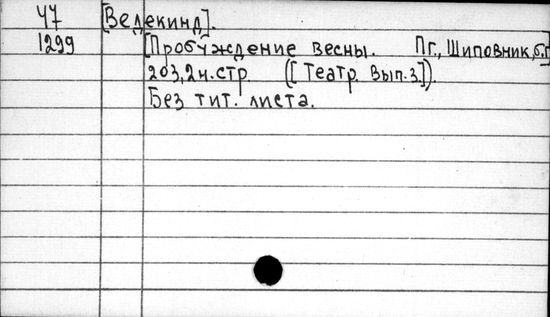 47 [Ведекинд].
1299 [Пробуждение весны. Пг., Шиповник, б.г]
203, 2 н.стр. ([Театр. Вып. 3.]).
Без тит. листа.